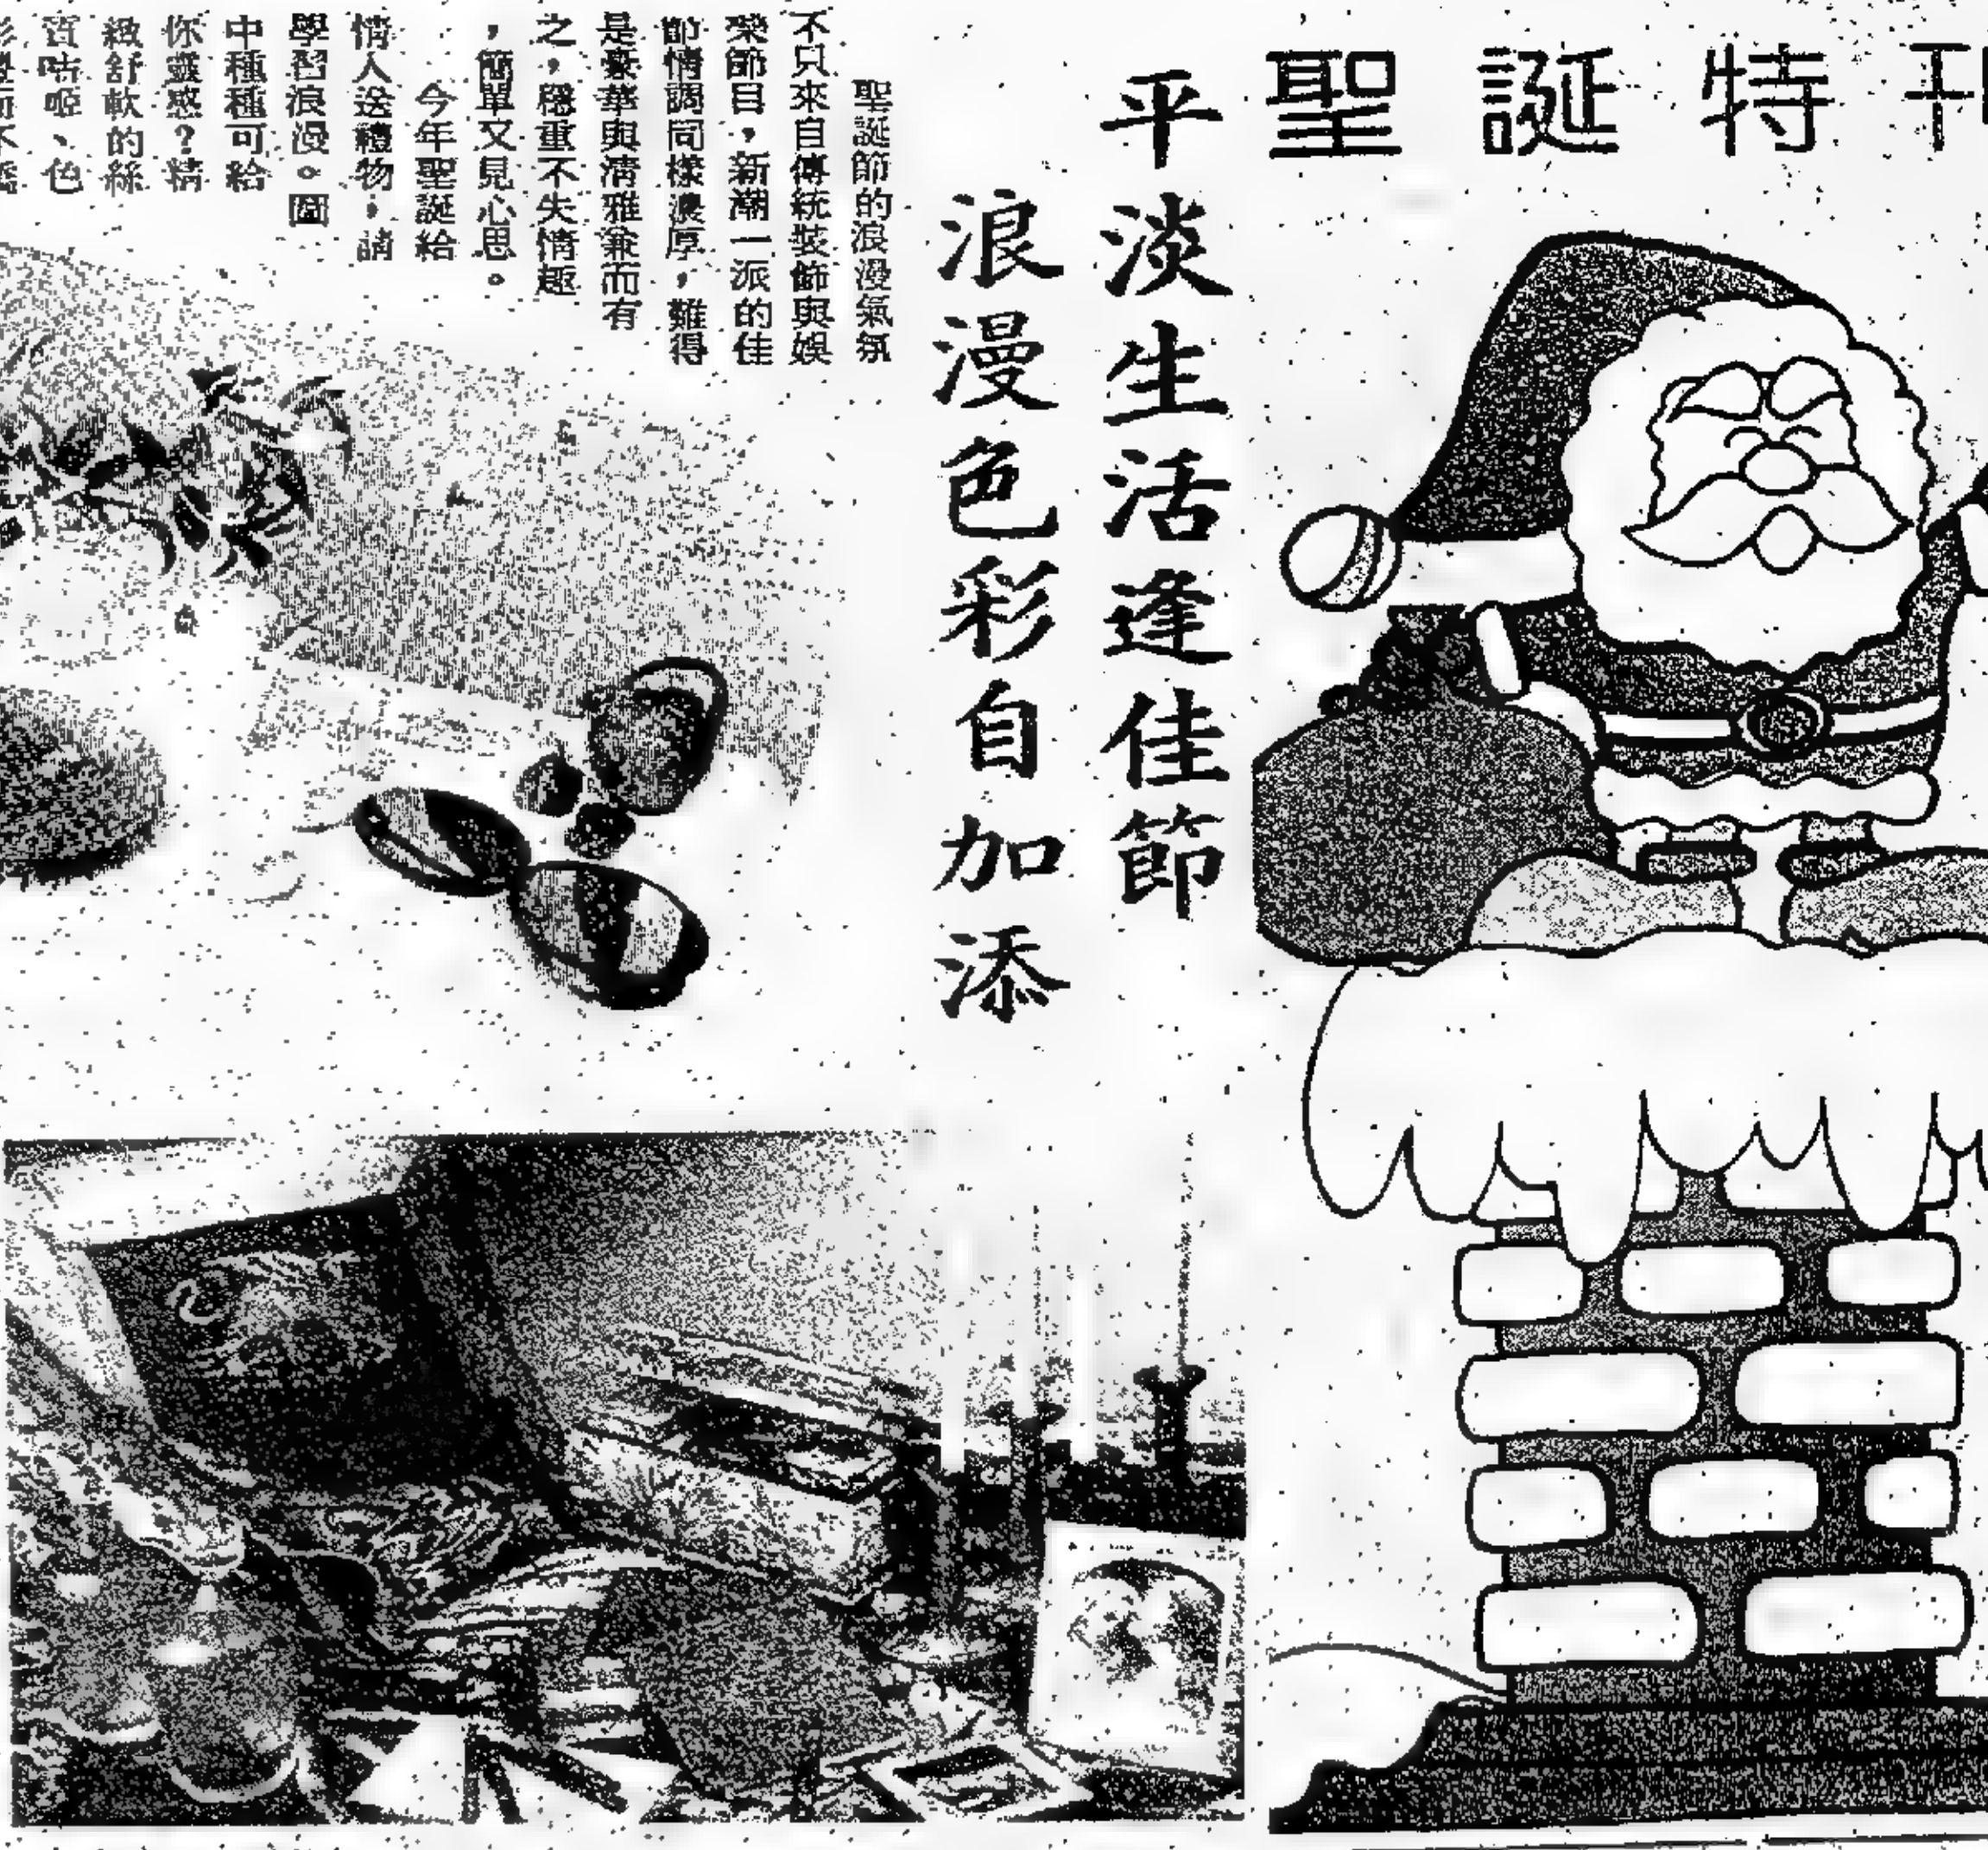 聖誕特刊
平淡生活逢佳節
浪漫色彩自加添
聖誕節的浪漫氣氛
不只來自傳統裝飾與娛
樂節目，新潮一派的佳
節情調同樣濃厚，難得
是豪華與清雅兼而有
之，穩重不失情趣
，簡單又見心思。
今年聖誕給
情人送禮物，請
學習浪漫。圖
中種種可給
你靈感？精
緻舒軟的絲
質咕𠱸、色